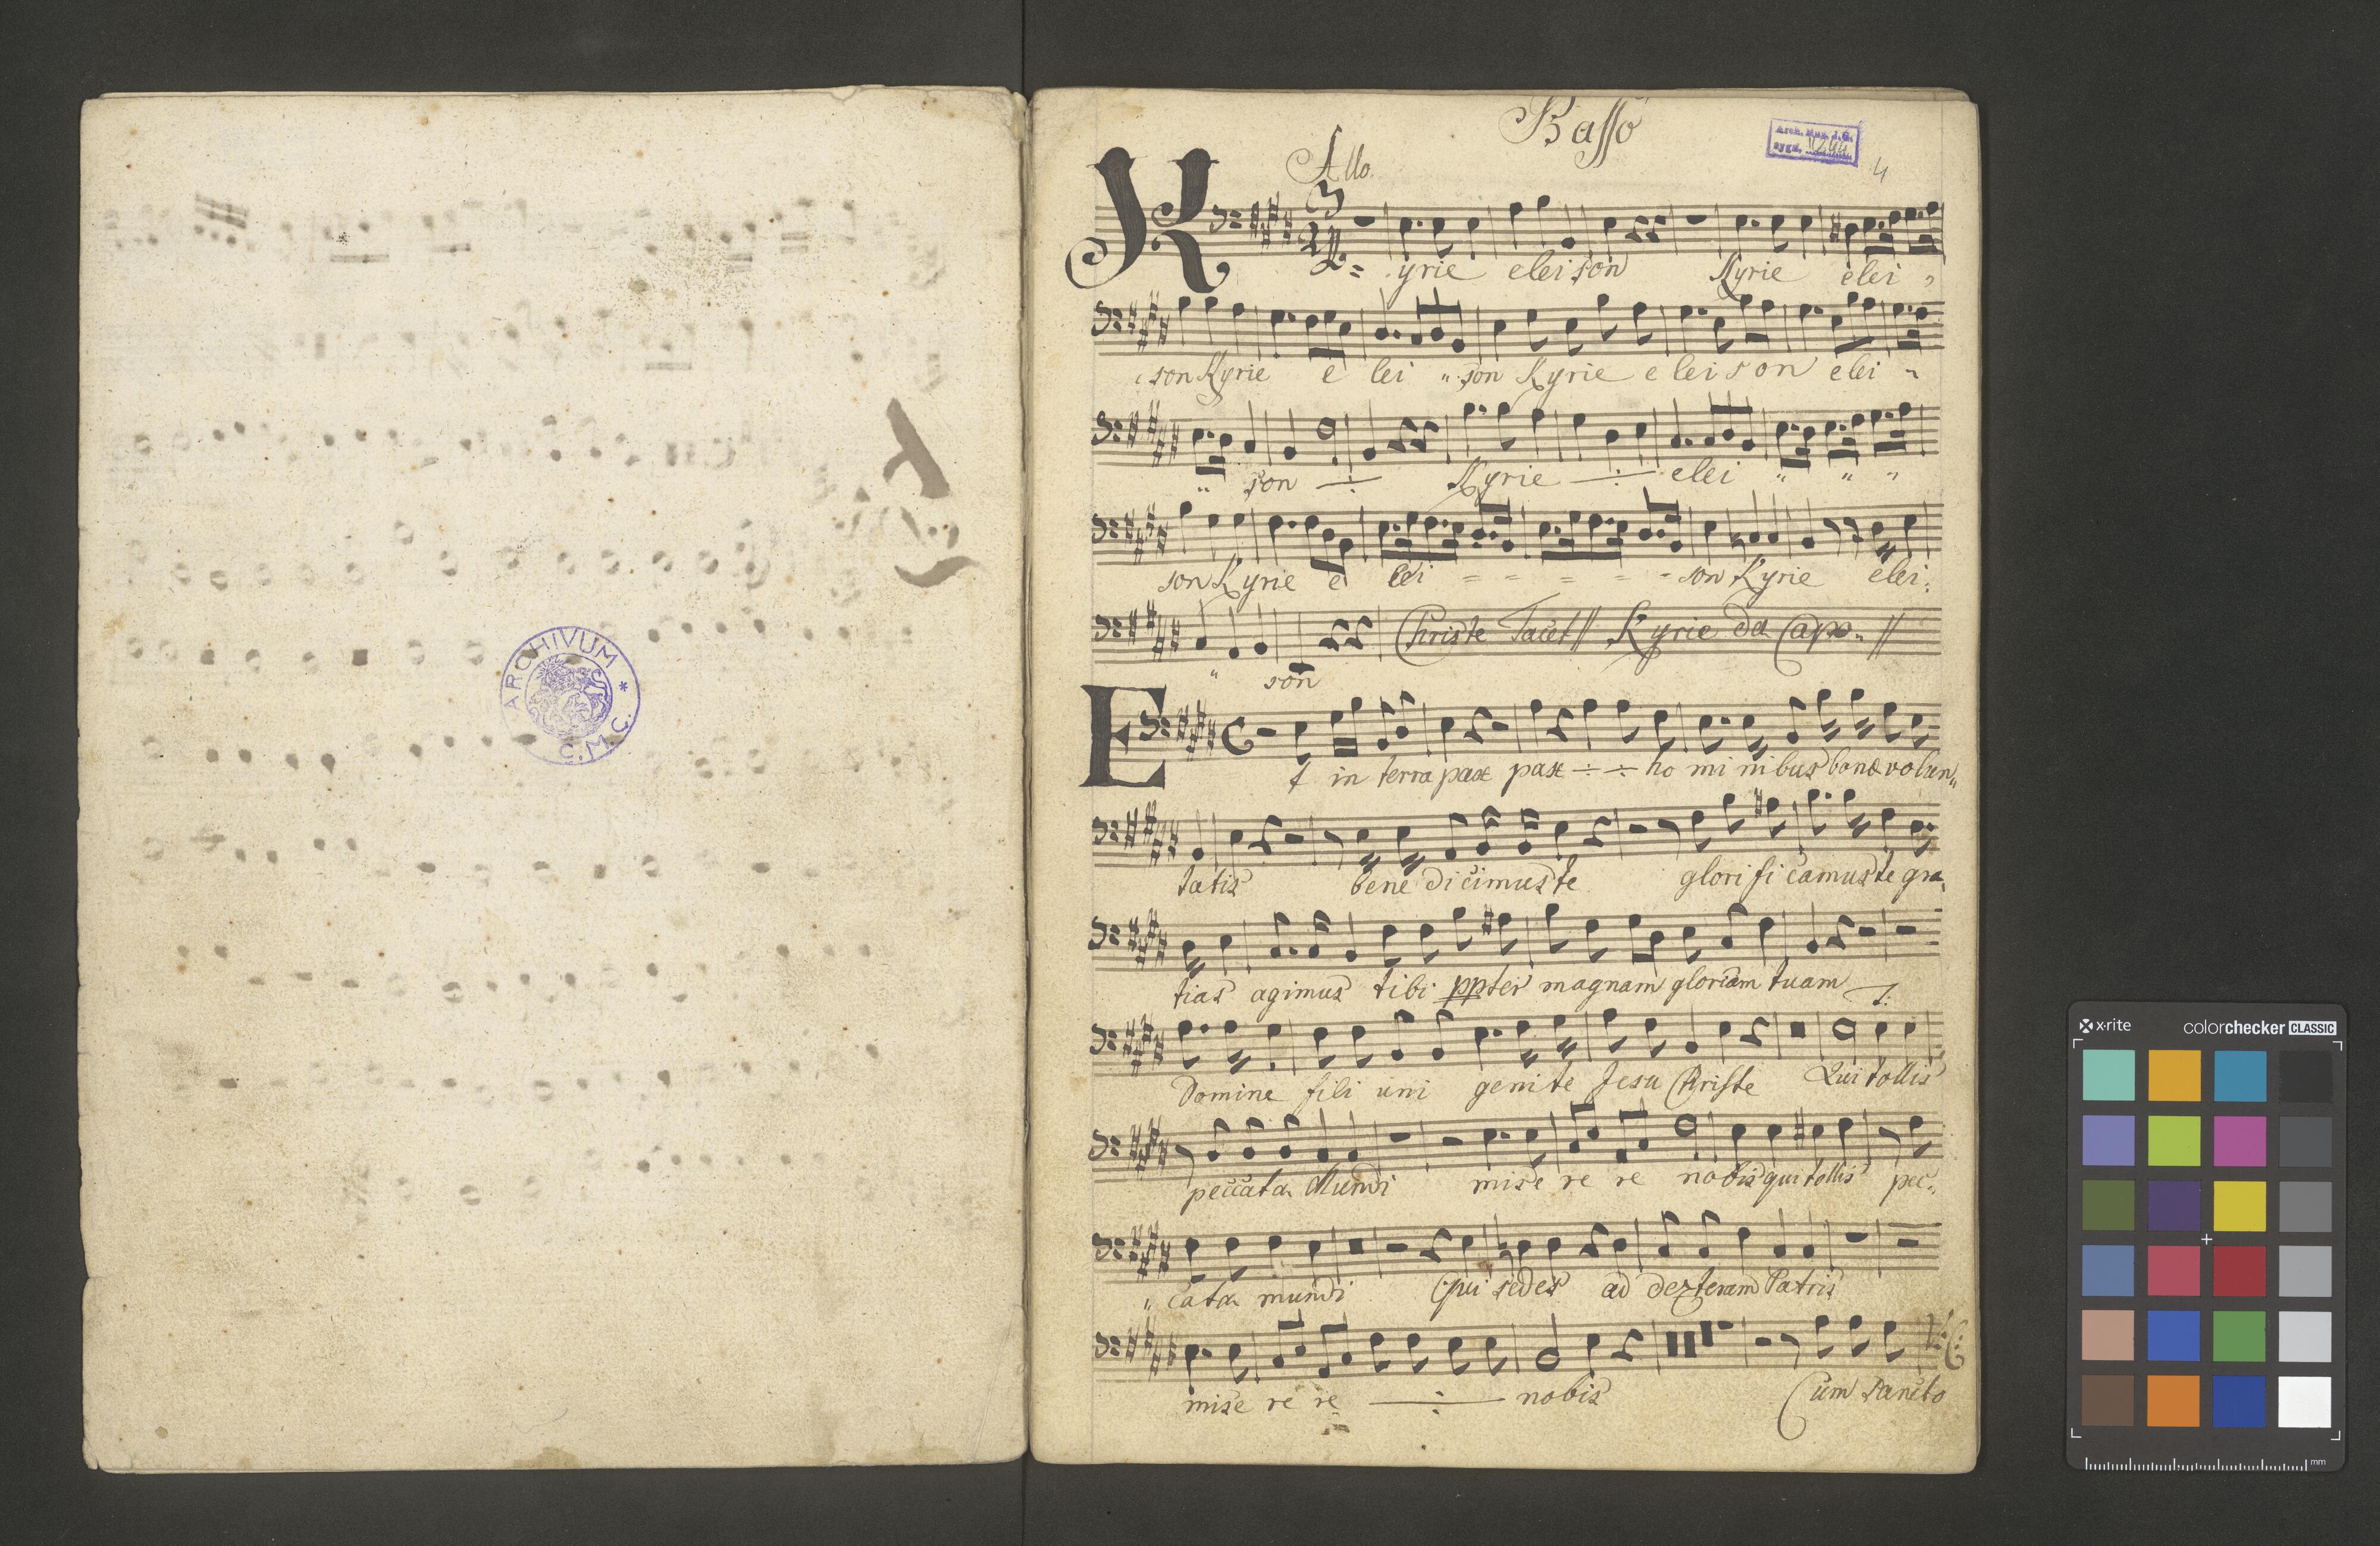 ARCHIVUM * C.M.C.
Basso
Arch. Muz. J.G.
sygn.
4
Allo.
Kyrie eleison Kyrie elei
son Kyrie e lei son Kyrie eleison elei
son Kyrie elei
son Kyrie e lei son Kyrie elei:
son Christe Tacet // Kyrie da Capo //
Et in terra pax pax ho mi nibus bonæ volun
tatis bene dicimus te glori fi camus te gra
tias agimus tibi ppter magnam gloriam tuam
Domine fili uni genite Jesu Christe Qui tollis
peccata Mundi mise re re nobis qui tollis pec
cata mundi Qui sedes ad dexteram Patris
mise re re nobis Cum Sancto
x-rite colorchecker CLASSIC
mm